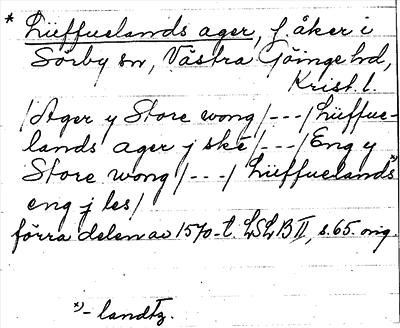 * Lüffuelands ager, f. åker i
Sörby sn, Västra Göinge hd,
Krist. l.
/Ager y Store wong/---/Lüffue-
lands ager j ske/---/Eng y
Store wong/---/Lüffuelands x)
eng j les/
förra delen av 1570-t. LSLB II, s. 65. orig.
x) -landtz.